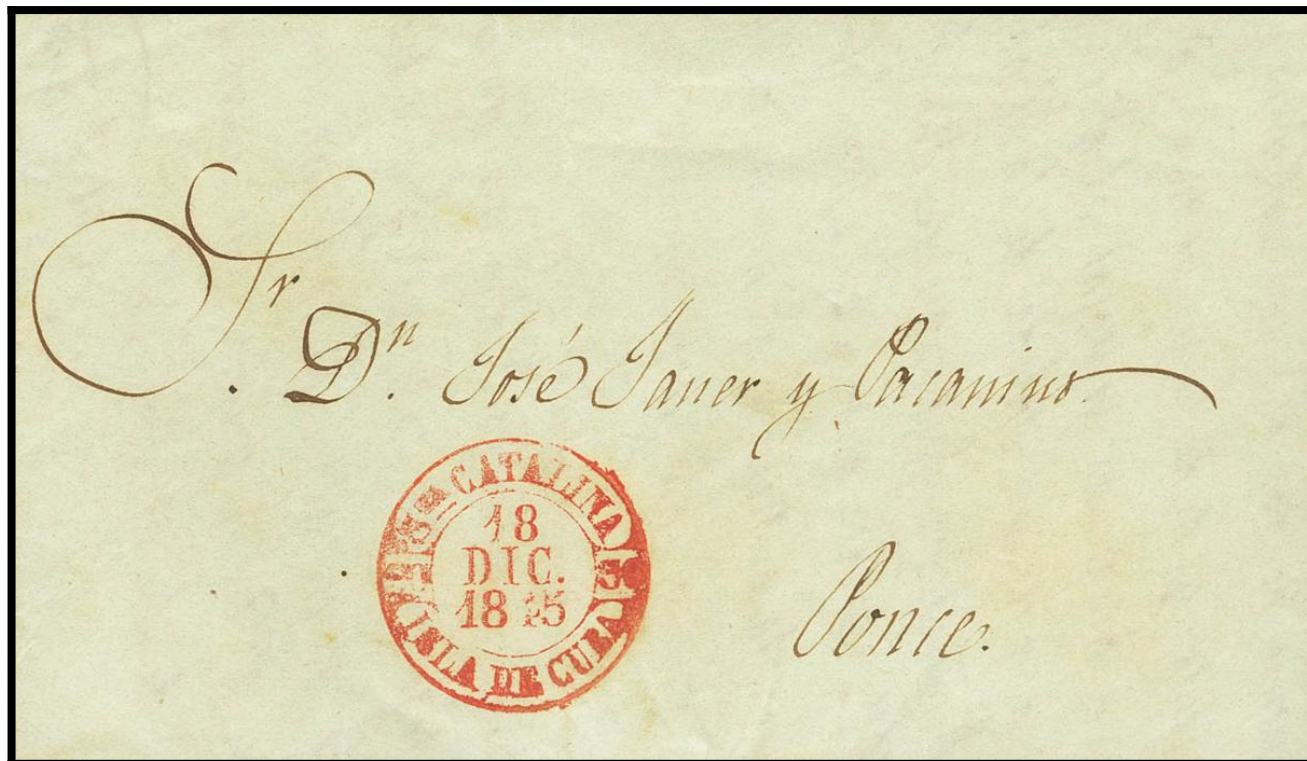 Sr
Dn. José Janer y Pacanins
Sta CATALINA
18
DIC.
ISLA DE CUBA
Ponce.